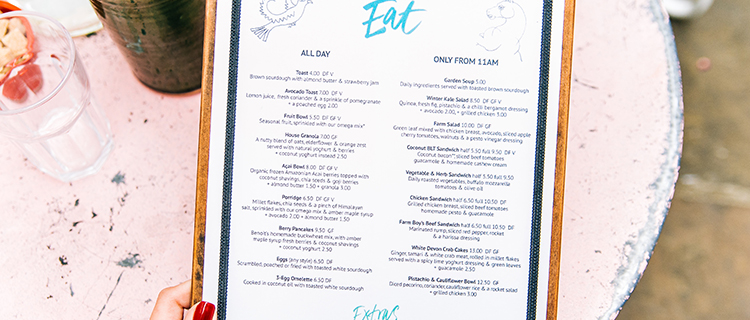 Eat
ALL DAY
Toast 4.00 DF V
Brown sourdough with almond butter & strawberry jam
Avocado Toast 7.00 DF V
Lemon juice, fresh coriander & a sprinkle of pomegranate
+ a poached egg 2.00
Fruit Bowl 5.50 DF GF V
Seasonal fruit, sprinkled with our omega mix*
House Granola 7.00 GF
A nutty blend of oats, elderflower & orange zest
served with natural yoghurt & berries
+ coconut yoghurt instead 2.50
Açai Bowl 8.00 DF GF V
Organic frozen Amazonian Acai berries topped with
coconut shavings, chia seeds & goji berries
+ almond butter 1.50 + granola 3.00
Porridge 6.50 DF GF V
Millet flakes, chia seeds & a pinch of Himalayan
salt, sprinkled with our omega mix & amber maple syrup
+ avocado 2.00 + almond butter 1.50
Berry Pancakes 9.50 GF
Benoit's homemade buckwheat mix, with amber
maple syrup fresh berries & coconut shavings
+ coconut yoghurt 2.50
Eggs (any style) 6.50
Scrambled, poached or fried with toasted white sourdough
3-Egg Omelette 6.50 DF
Cooked in coconut oil with toasted white sourdough
ONLY FROM 11AM
Garden Soup 5.00
Daily ingredients served with toasted brown sourdough
Winter Kale Salad 8.50 DF GF V
Quinoa, fresh fig, pistachio & a chilli bergamot dressing
+ avocado 2.00, + grilled chicken 3.00
Farm Salad 10.00 DF GF
Green leaf mixed with chicken breast, avocado, sliced apple
cherry tomatoes, walnuts & a pesto vinegar dressing
Coconut BLT Sandwich half 5.50 full 9.50 DF V
Coconut bacon**, sliced beef tomatoes
guacamole & homemade cashew cream
Vegetable & Herb Sandwich half 5.50 full 9.50
Daily roasted vegetables, buffalo mozzarella
tomatoes & olive oil
Chicken Sandwich half 6.50 full 10.50 DF
Grilled chicken breast, sliced beef tomatoes
homemade pesto & guacamole
Farm Boy's Beef Sandwich half 6.50 full 10.50 DF
Marinated rump, sliced red pepper, rocket
& a harissa dressing
White Devon Crab Cakes 13.00 DF
Ginger, tamari & white crab meat, rolled in millet flakes
served with a spicy lime yoghurt dressing & green leaves
+ guacamole 2.50
Pistachio & Cauliflower Bowl 12.50 GF
Diced pecorino, coriander, cauliflower rice & a rocket salad
+ grilled chicken 3.00
Extras